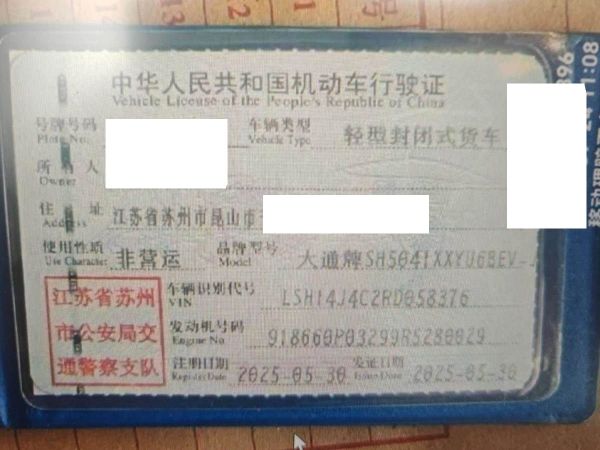 号
13
中华人民共和国机动车行驶证
Vehicle License of the People's Republic of China
号牌号码
Plate No.
车辆类型
Vehicle Type
轻型封闭式货车
所有人
Owner
住址
Address
江苏省苏州市昆山市
使用性质
Use Character
非营运
品牌型号
Model
大通牌SH5041XXYU6BEV-
江苏省苏州
市公安局交
通警察支队
车辆识别代号
VIN
LSH14J4C2RD058376
发动机号码
Engine No.
918660P03299R5280029
注册日期
Register Date
2025-05-30
发证日期
Issue Date
2025-05-30
11:08